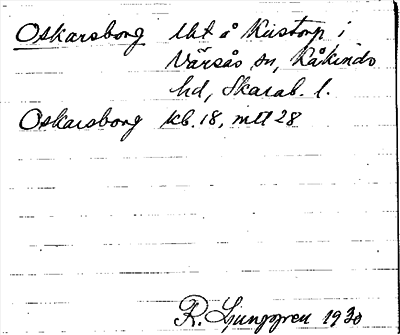 Oskarsborg Uht å Ristorp i
Värsås sn, Kåkinds
hd, Skarab. l.
Oskarsborg kb. 18, mtl 28
R. Ljunggren 1930